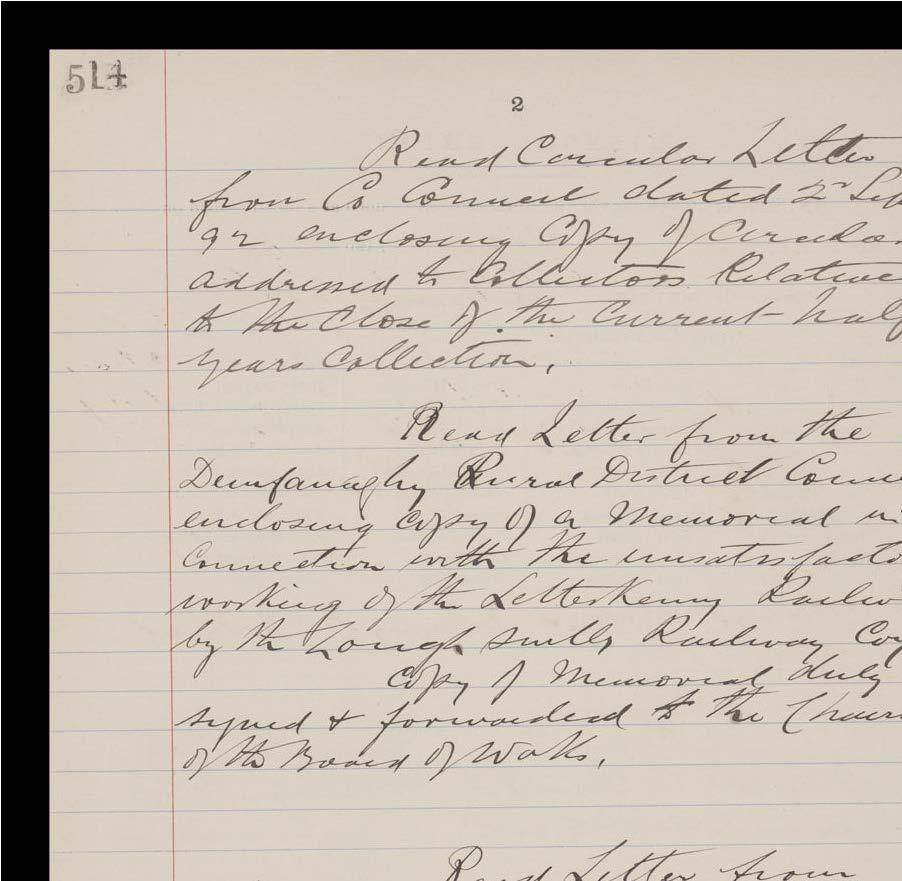 514
2
Read Circular Letter
from Co Council dated 2nd Sep
enclosing Copy of Circular
addressed to Collectors Relative
to the Close of the Current half
years Collection.
Read Letter from the
Dunfanaghy Rural District Counc
enclosing copy of a Memorial in
Connection with the unsatisfacto
working of the Letterkenny Railw
by the Lough Swilly Railway Coy
Copy of Memorial duly
signed & forwarded to the Chair
of the Board of Works.
Read Letter from